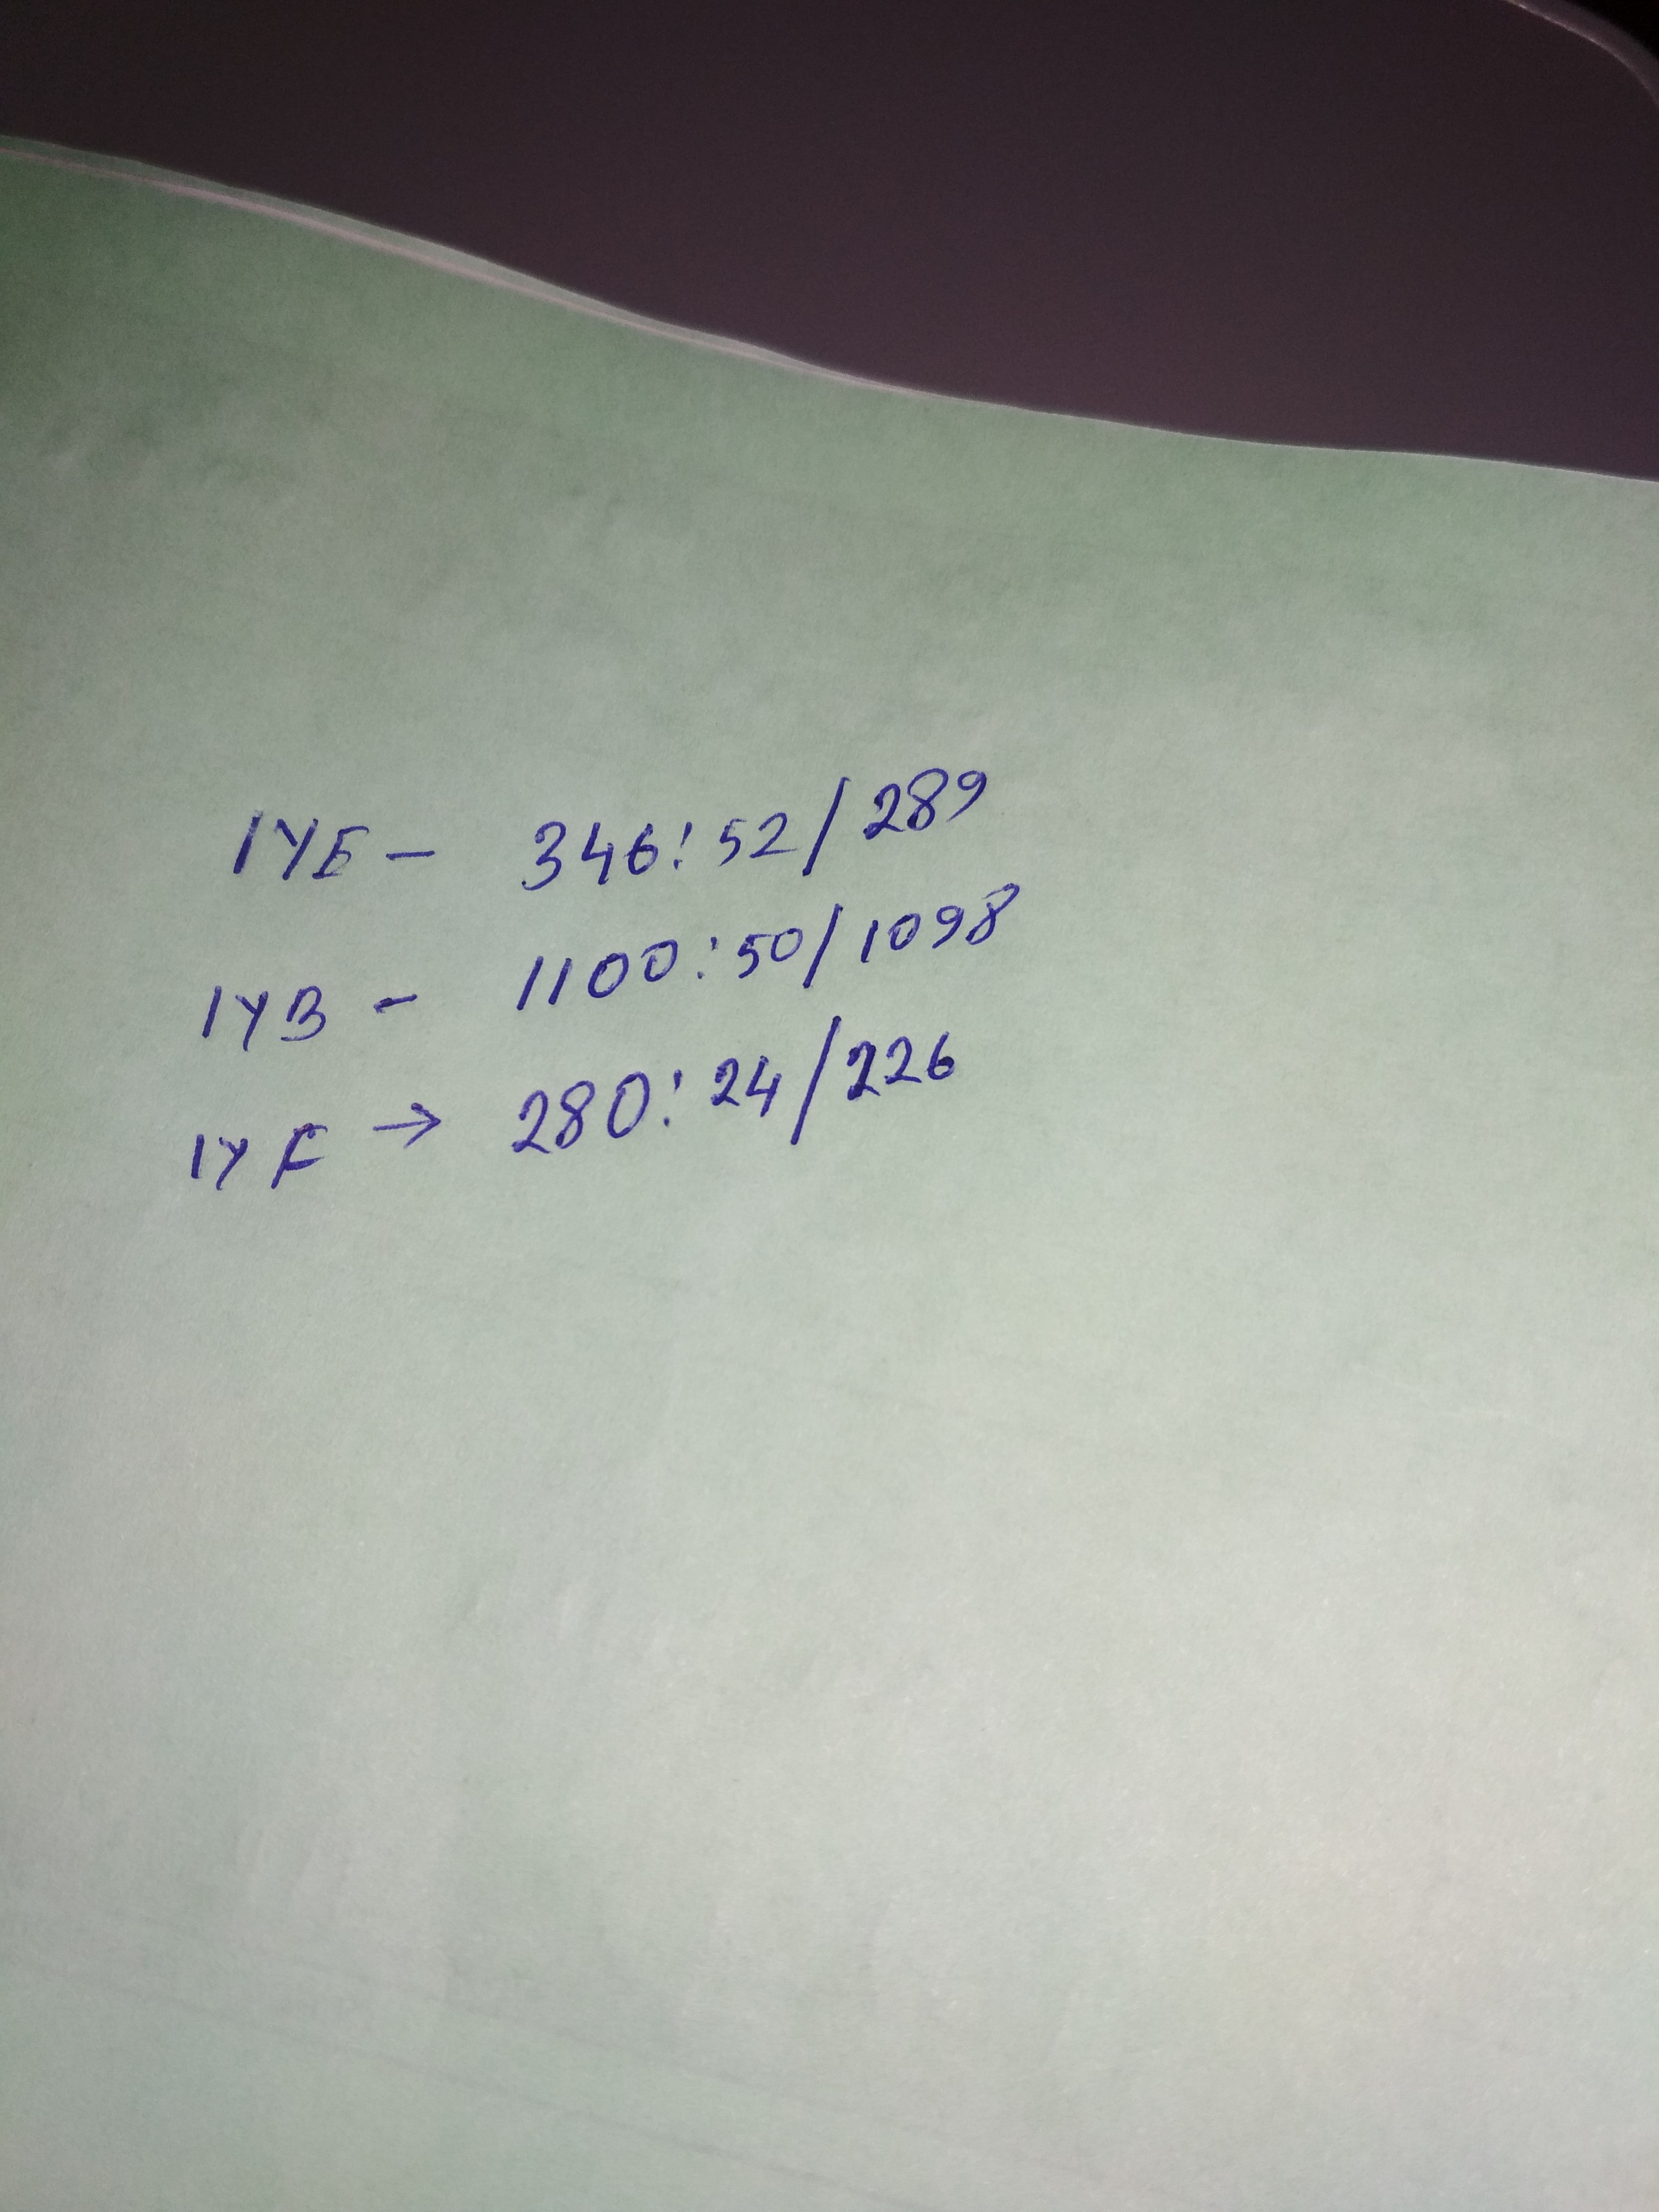 1YE - 346:52/289
1YB - 1100:50/1098
1YF → 280:24/226